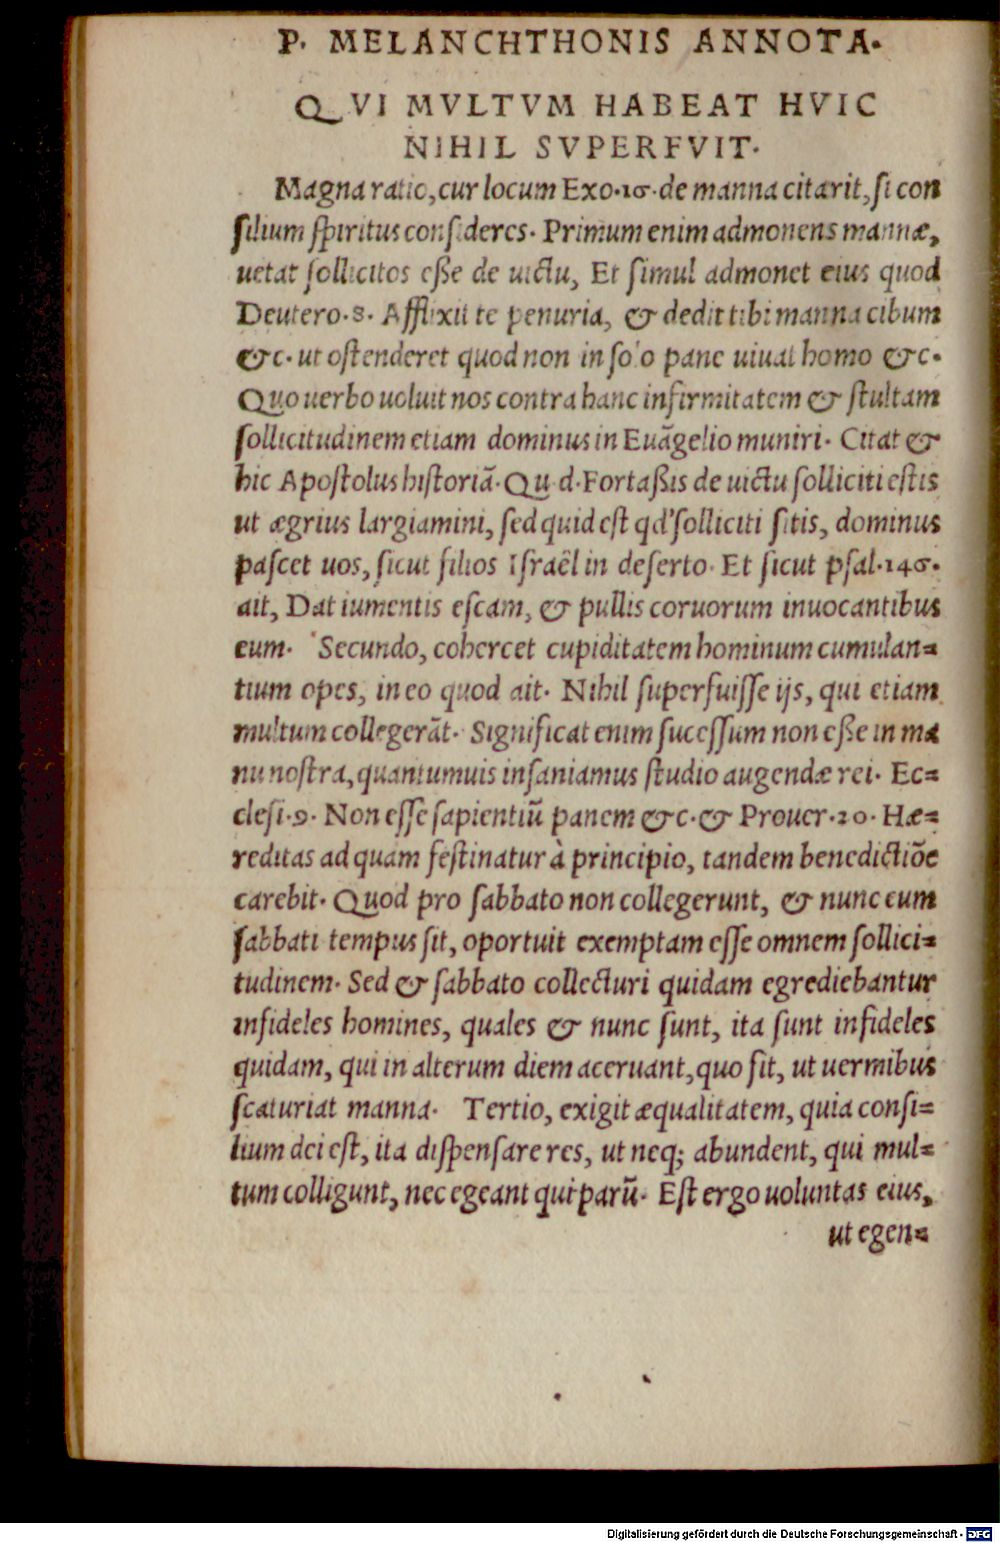 P. MELANCHTHONIS ANNOTA.
QVI MVLTVM HABEAT HVIC
NIHIL SVPERFVIT.
Magna ratio, cur locum Exo.16. de manna citarit, si con
silium spiritus consideres. Primum enim admonens mannæ,
uetat sollicitos esse de uictu, Et simul admonet eius quod
Deutero.8. Afflixit te penuria, & dedit tibi manna cibum
&c. ut ostenderet quod non in solo pane uiuat homo &c.
Quo uerbo uoluit nos contra hanc infirmitatem & stultam
sollicitudinem etiam dominus in Euãgelio muniri. Citat &
hic Apostolus historiã. Qu d. Fortaßis de uictu solliciti estis
ut ægrius largiamini, sed quid est qd' solliciti sitis, dominus
pascet uos, sicut filios Israël in deserto. Et sicut psal.146.
ait, Dat iumentis escam, & pullis coruorum inuocantibus
eum. Secundo, cohercet cupiditatem hominum cumulan=
tium opes, in eo quod ait. Nihil superfuisse ijs, qui etiam
multum collegerãt. Significat enim successum non eße in ma
nu nostra, quantumuis insaniamus studio augendæ rei. Ec=
clesi.9. Non esse sapientiũ panem &c. & Prouer.20. Hæ=
reditas ad quam festinatur à principio, tandem benedictiõe
carebit. Quod pro sabbato non collegerunt, & nunc cum
sabbati tempus sit, oportuit exemptam esse omnem sollici=
tudinem. Sed & sabbato collecturi quidam egrediebantur
infideles homines, quales & nunc sunt, ita sunt infideles
quidam, qui in alterum diem aceruant, quo fit, ut uermibus
scaturiat manna. Tertio, exigit æqualitatem, quia consi=
lium dei est, ita dispensare res, ut neq; abundent, qui mul=
tum colligunt, nec egeant qui parũ. Est ergo uoluntas eius,
ut egen=
Digitalisierung gefördert durch die Deutsche Forschungsgemeinschaft - DFG